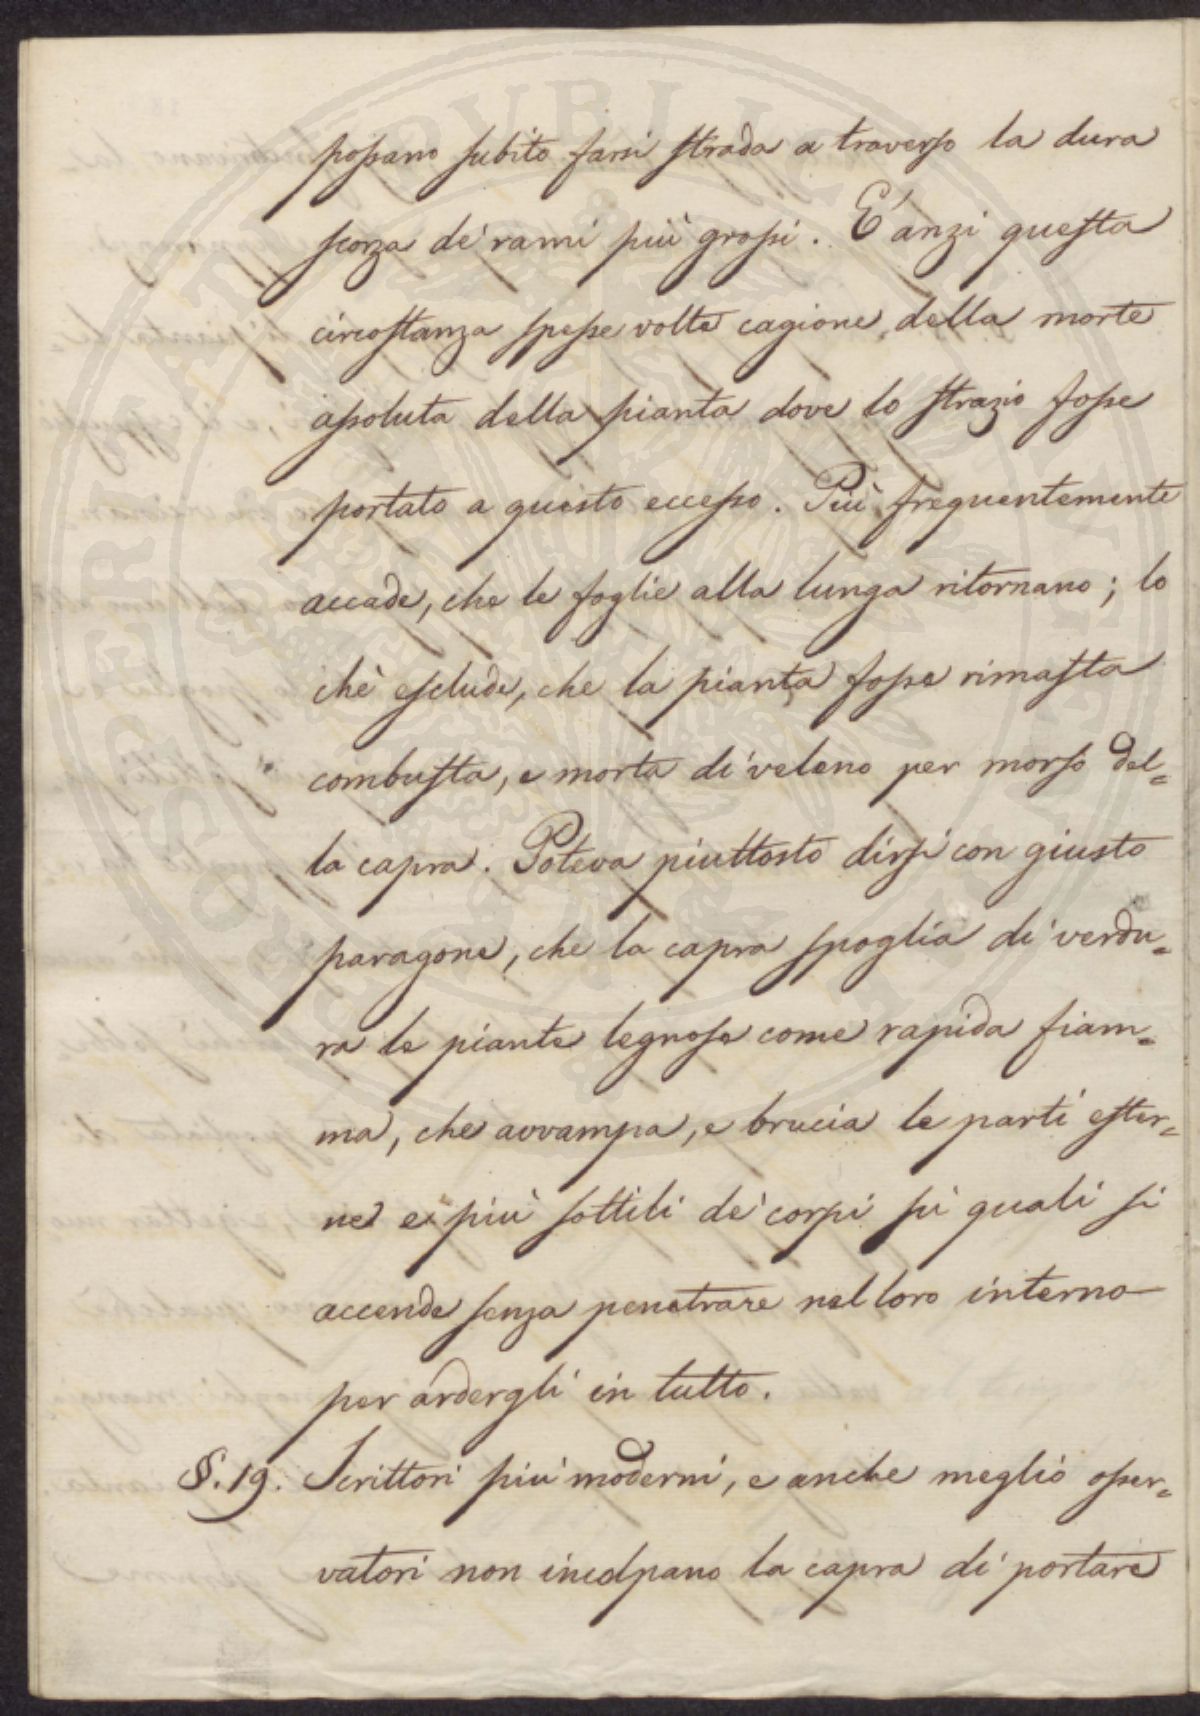 possano subito farsi strada a traverso la dura
scorza de' rami più grossi. E' anzi questa
circostanza spesse volte cagione della morte
assoluta della pianta dove lo strazio fosse
portato a questo eccesso. Più frequentemente
accade, che le foglie alla lunga ritornano; lo
chè esclude, che la pianta fosse rimasta
combusta, e morta di veleno per morso del=
la capra. Poteva piuttosto dirsi con giusto
paragone, che la capra spoglia di verdu=
ra le piante legnose come rapida fiam=
ma, che avvampa, e brucia le parti ester=
ne e più sottili de' corpi su quali si
accende senza penetrare nel loro interno
per ardergli in tutto.
§. 19. Scrittori più moderni, e anche meglio osser=
vatori non incolpano la capra di portare